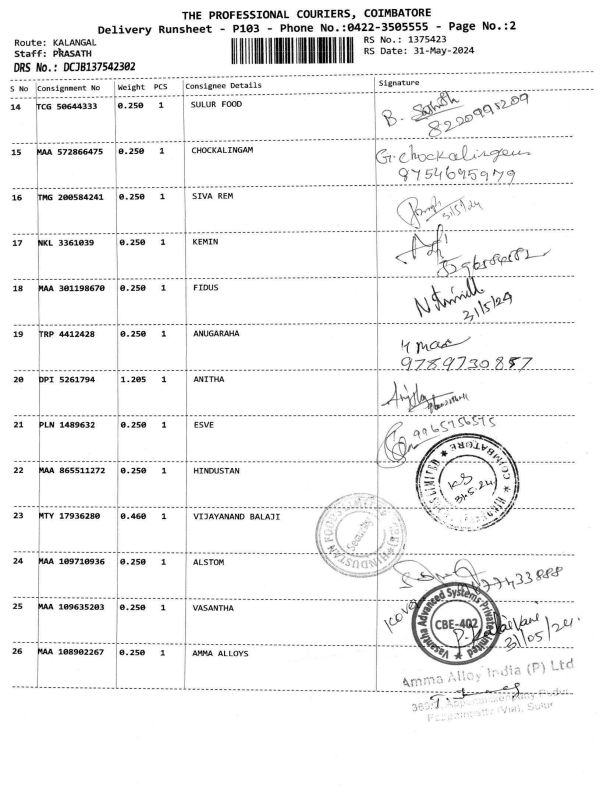 THE PROFESSIONAL COURIERS, COIMBATORE
Delivery Runsheet - P103 - Phone No.:0422-3505555 - Page No.:2
Route: KALANGAL RS No.: 1375423
Staff: PRASATH RS Date: 31-May-2024
DRS No.: DCJB137542302
S No Consignment No Weight PCS Consignee Details Signature
14 TCG 50644333 0.250 1 SULUR FOOD B.
8220995209
15 MAA 572866475 0.250 1 CHOCKALINGAM G. Chockalingam
8754695979
16 TMG 200584241 0.250 1 SIVA REM
31/5/24
17 NKL 3361039 0.250 1 KEMIN
18 MAA 301198670 0.250 1 FIDUS
31/5/24
19 TRP 4412428 0.250 1 ANUGARAHA
9789730857
20 DPI 5261794 1.205 1 ANITHA
21 PLN 1489632 0.250 1 ESVE 9965756575
22 MAA 865511272 0.250 1 HINDUSTAN
COIMBATORE
31.5.24
23 MTY 17936280 0.460 1 VIJAYANAND BALAJI
HINDUSTAN FOODS LIMITED
Security
24 MAA 109710936 0.250 1 ALSTOM
77433888
25 MAA 109635203 0.250 1 VASANTHA
Vasantha Advanced Systems Private Limited
CBE-402
31/05/24
26 MAA 108902267 0.250 1 AMMA ALLOYS
Amma Alloy India (P) Ltd
Sulur